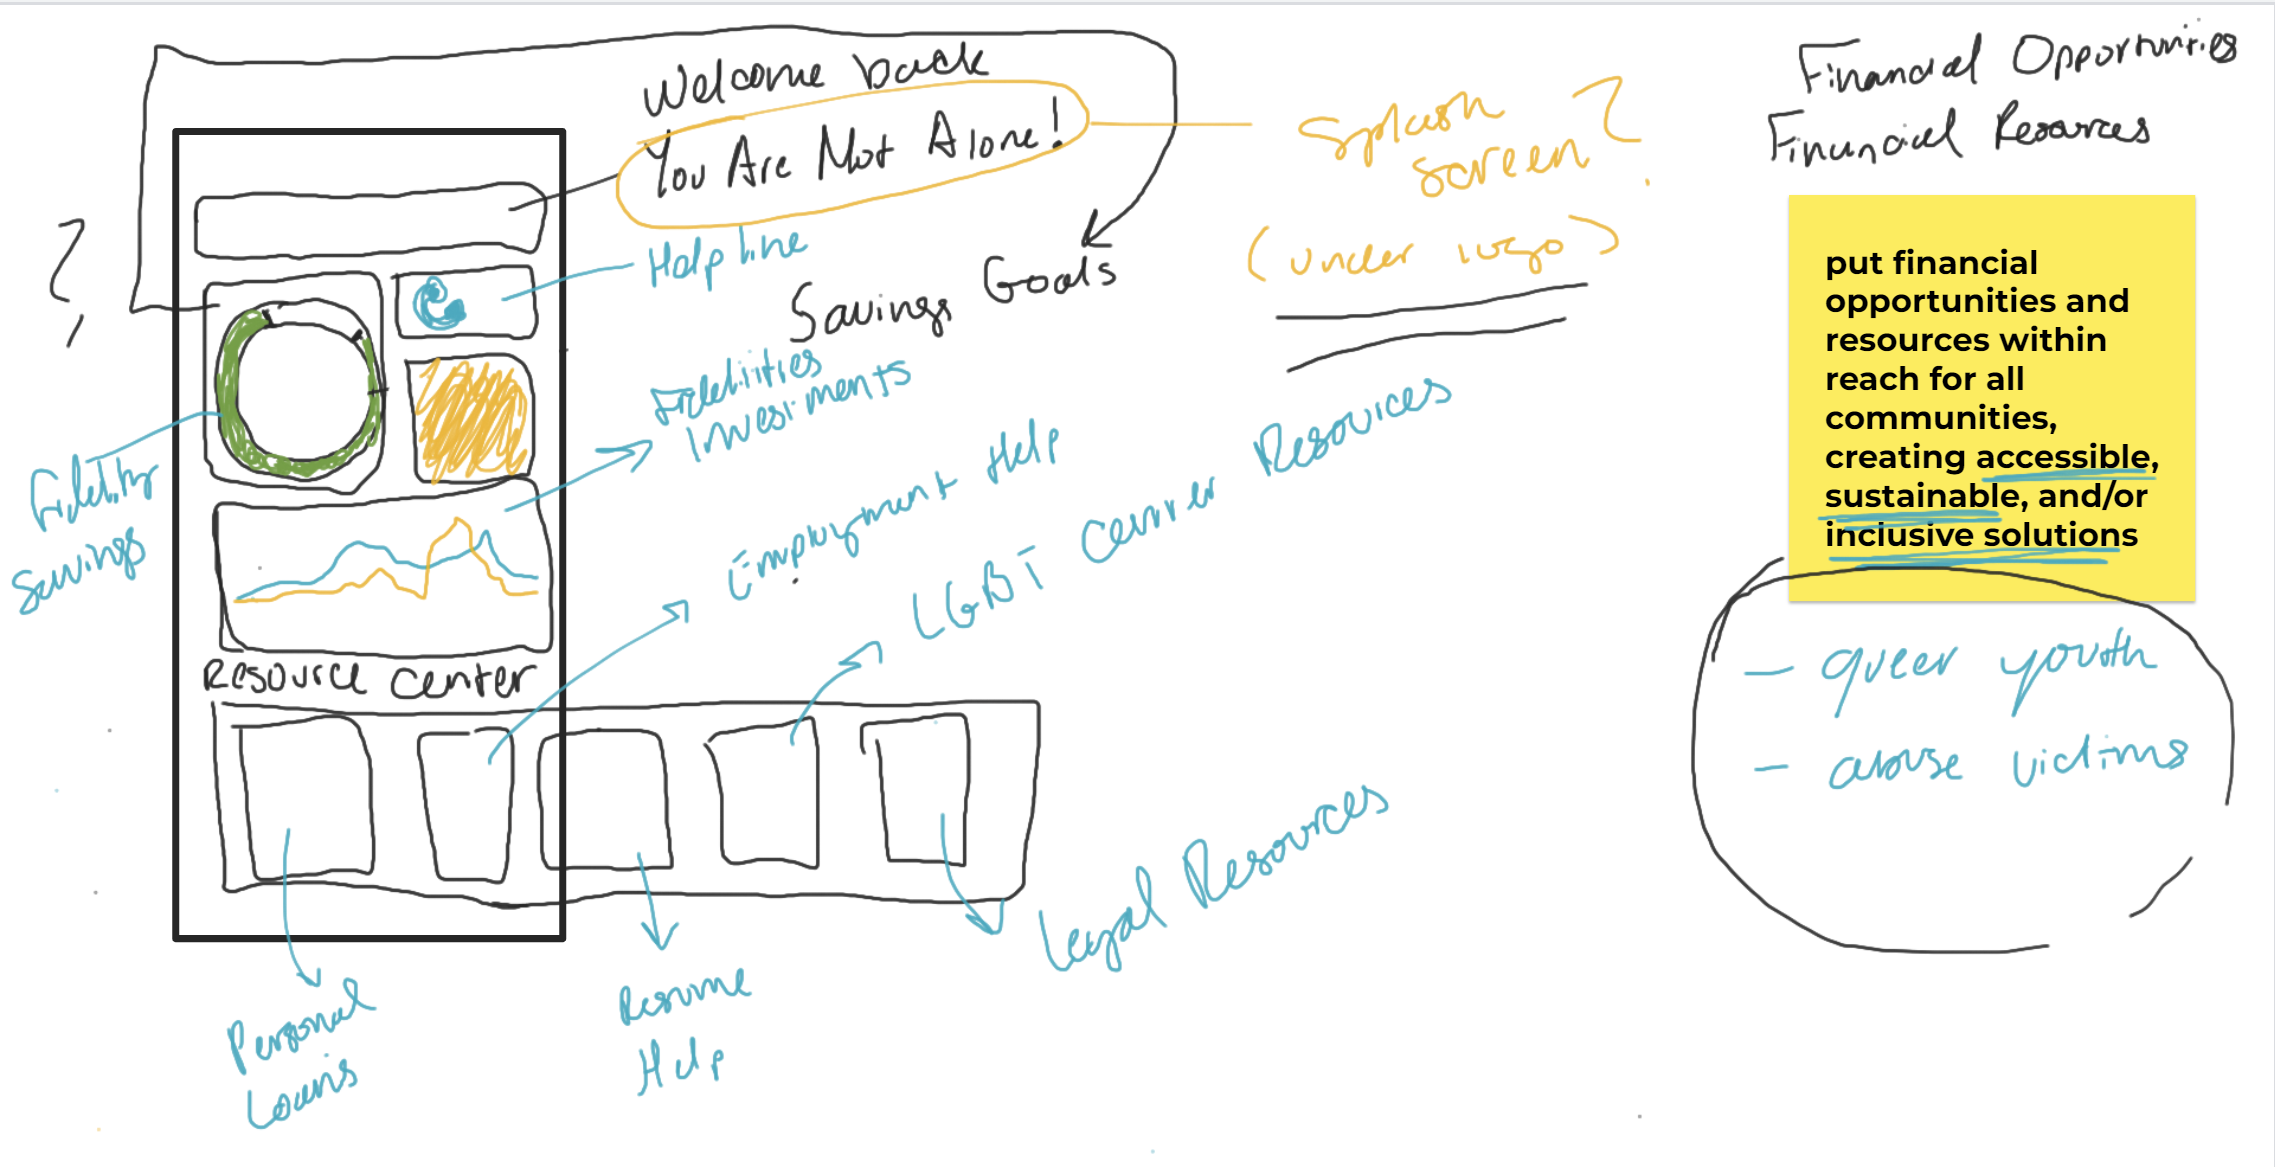 Welcome back
You Are Not Alone!
Splash
screen?
(under logo)
Help line
Savings Goals
?
Fidelity
Savings
Fidelities
Investments
Employment Help
LGBT Career Resources
Resource Center
Personal
Loans
Resume
Help
Legal Resources
Financial Opportunities
Financial Resources
put financial
opportunities and
resources within
reach for all
communities,
creating accessible,
sustainable, and/or
inclusive solutions
- queer youth
- abuse victims